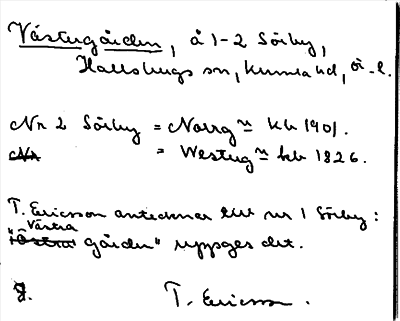 Västergården, å 1-2 Sörby,
Hallsbergs sn, Kumla hd, Ör. l.
Nr 2 Sörby = Norrgn kb 1901.
= Westugn kb 1826.
T. Ericsson antecknar till nr 1 Sörby:
"Västra gården" uppges det.
T. Ericsson.